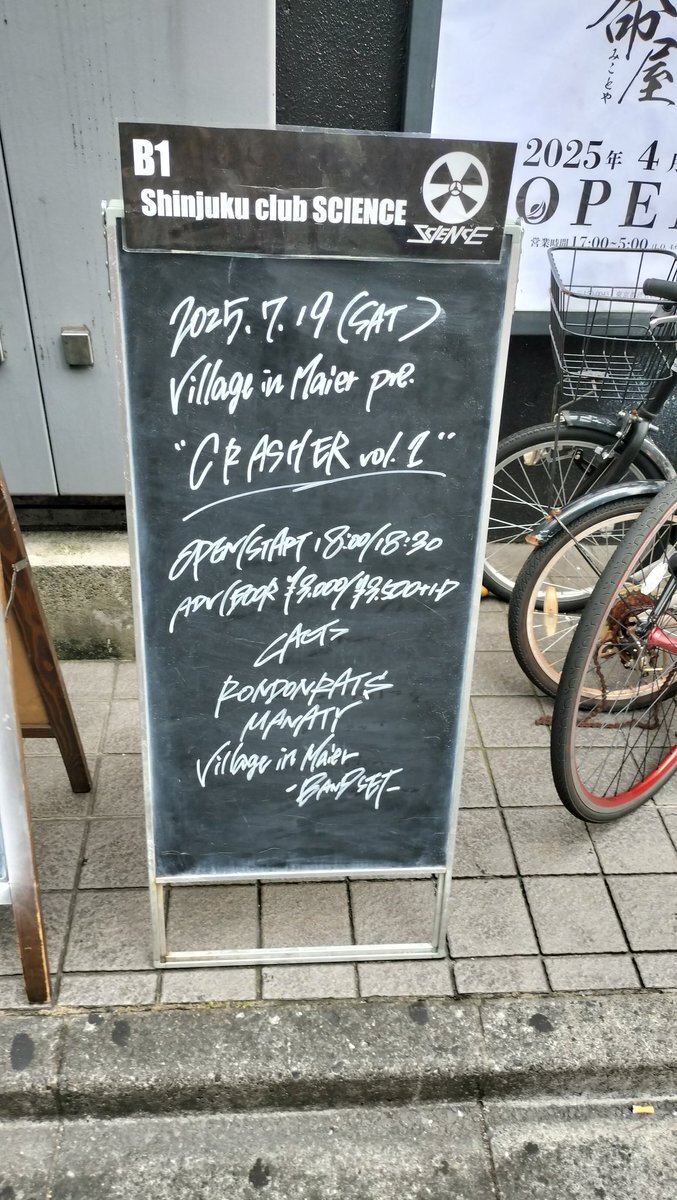 B1
Shinjuku club SCIENCE
SCIENCE
2025.7.19(SAT)
Village in Maier pre.
"CRASHER vol.1"
OPEN/START 18:00/18:30
ADV/DOOR ¥3.000/¥3.500+1D
<ACT>
RONDONRATS
MANATY
Village in Maier
-BAND SET-
命屋
みことや
2025年 4月
OPE
営業時間 17:00~5:00